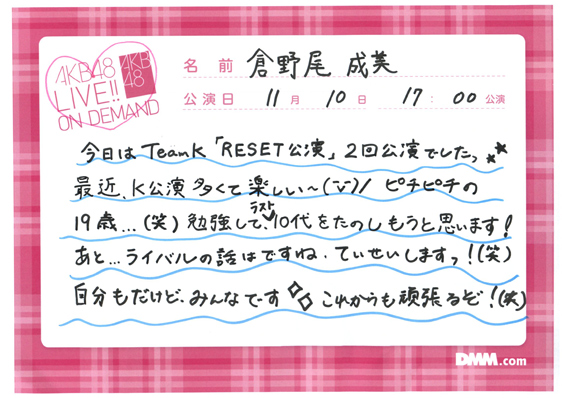 AKB48
LIVE!!
ON DEMAND
AKB
48
名前 倉野尾 成美
公演日 11月 10日 17:00公演
今日は TeamK「RESET公演」2回公演でしたっ
最近、K公演多くて楽しい〜(˘ᵕ˘)/ ピチピチの
19歳…(笑) 勉強して、ラスト10代をたのしもうと思います!
あと…ライバルの話はですね、ていせいしますっ!(笑)
自分もだけど、みんなです これからも頑張るぞ!(笑)
DMM.com